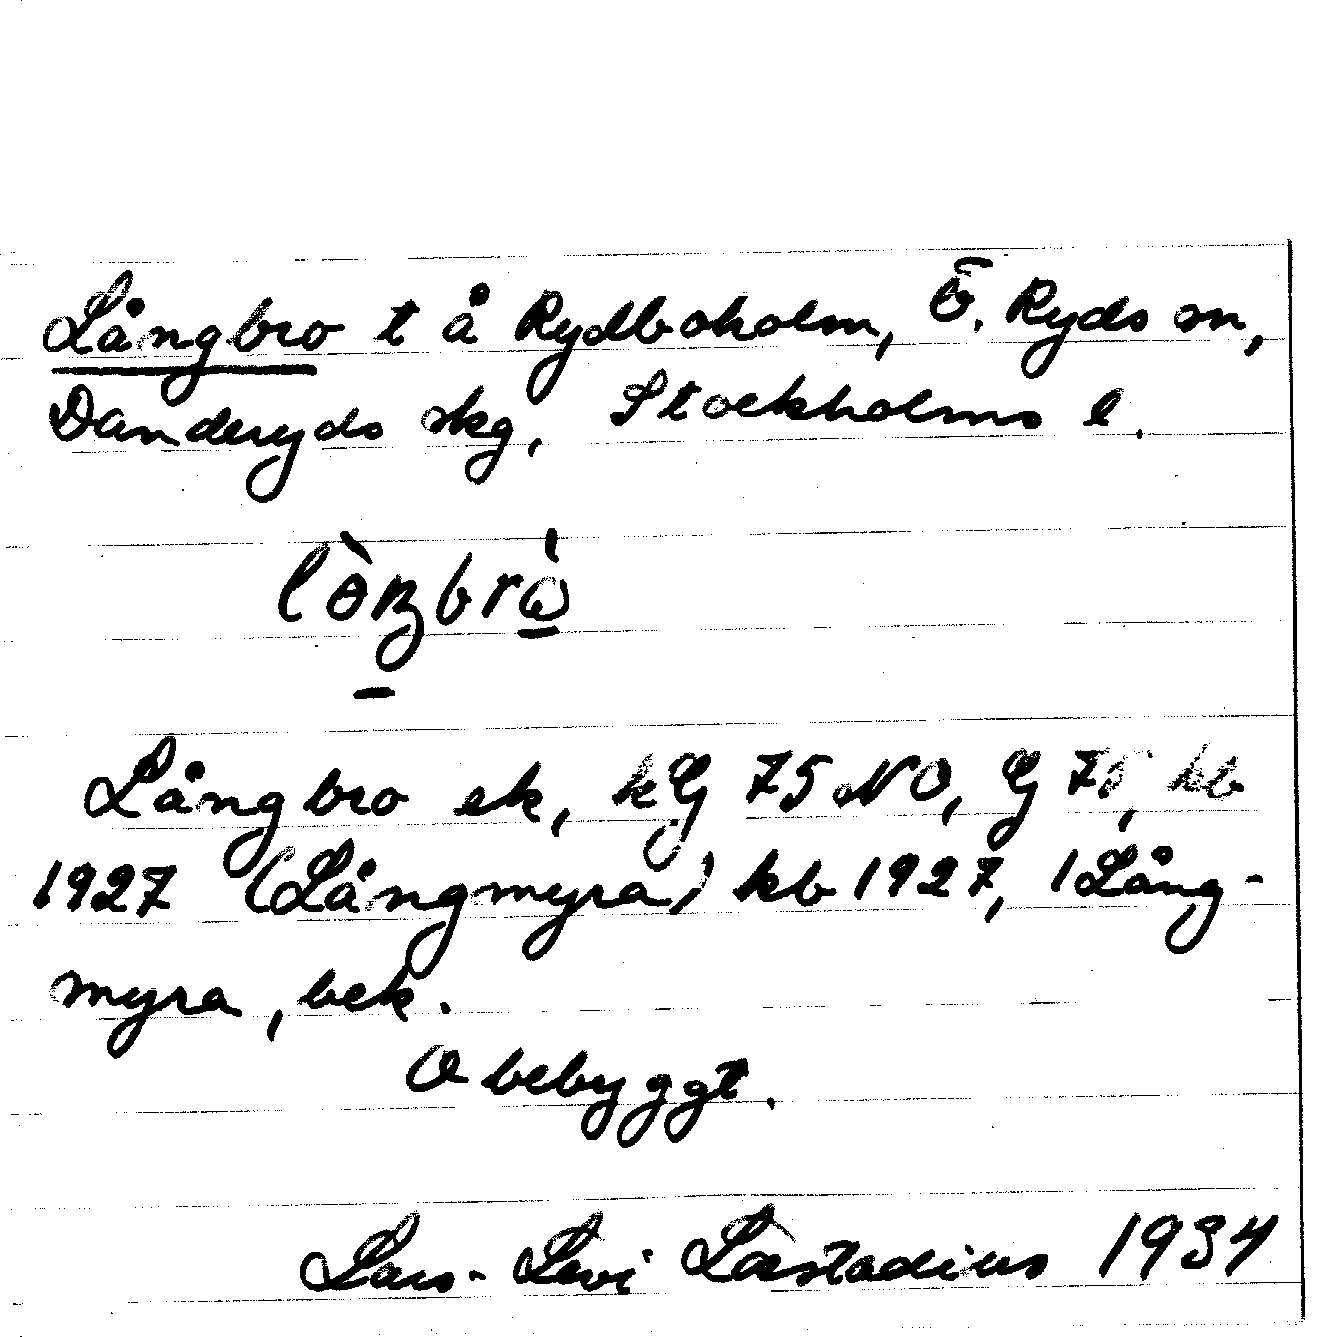 Långbro t å Rydboholm, Ö. Ryds sn,
Danderyds skg, Stockholms l.
Långbro ek, kG 75 NO, G 75, kb
1927 (Långmyra) kb 1927, 1Lång-
myra, bek.
Obebyggt.
Lars-Levi Læstadius 1934